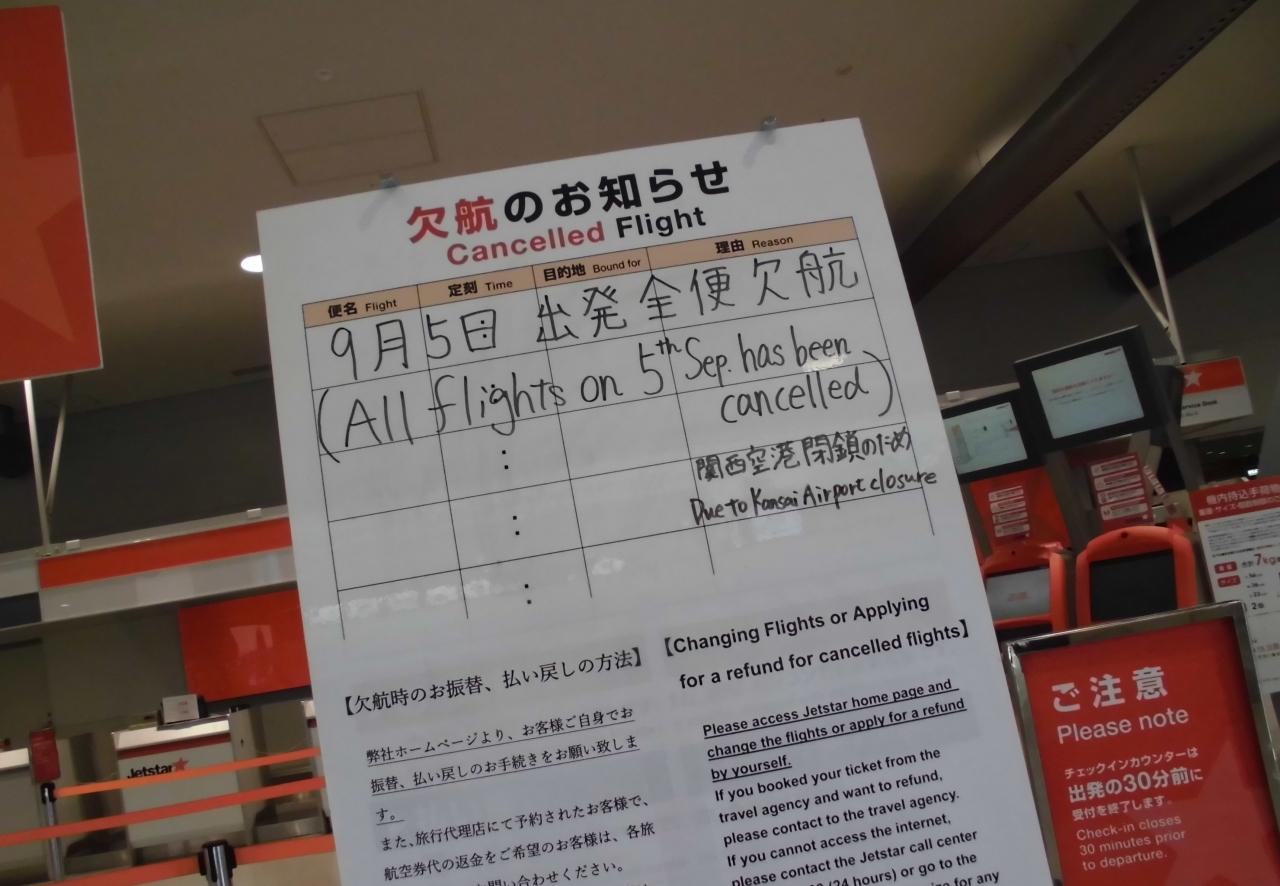 欠航のお知らせ
Cancelled Flight
便名 Flight 定刻 Time 目的地 Bound for 理由 Reason
9月5日 出発全便欠航
(All flights on 5th Sep. has been
cancelled)
関西空港閉鎖のため
Due to Kansai Airport closure
【欠航時のお振替、払い戻しの方法】
弊社ホームページより、お客様ご自身でお
振替、払い戻しのお手続きをお願い致しま
す。
また、旅行代理店にて予約されたお客様で、
航空券代の返金をご希望のお客様は、各旅
問い合わせください。
【Changing Flights or Applying
for a refund for cancelled flights】
Please access Jetstar home page and
change the flights or apply for a refund
by yourself.
If you booked your ticket from the
travel agency and want to refund,
please contact to the travel agency.
If you cannot access the internet,
please contact the Jetstar call center
(24 hours) or go to the
for any
Jetstar
Desk
機内持込手荷物
7kg
ご注意
Please note
チェックインカウンターは
出発の30分前に
受付を終了します。
Check-in closes
30 minutes prior
to departure.